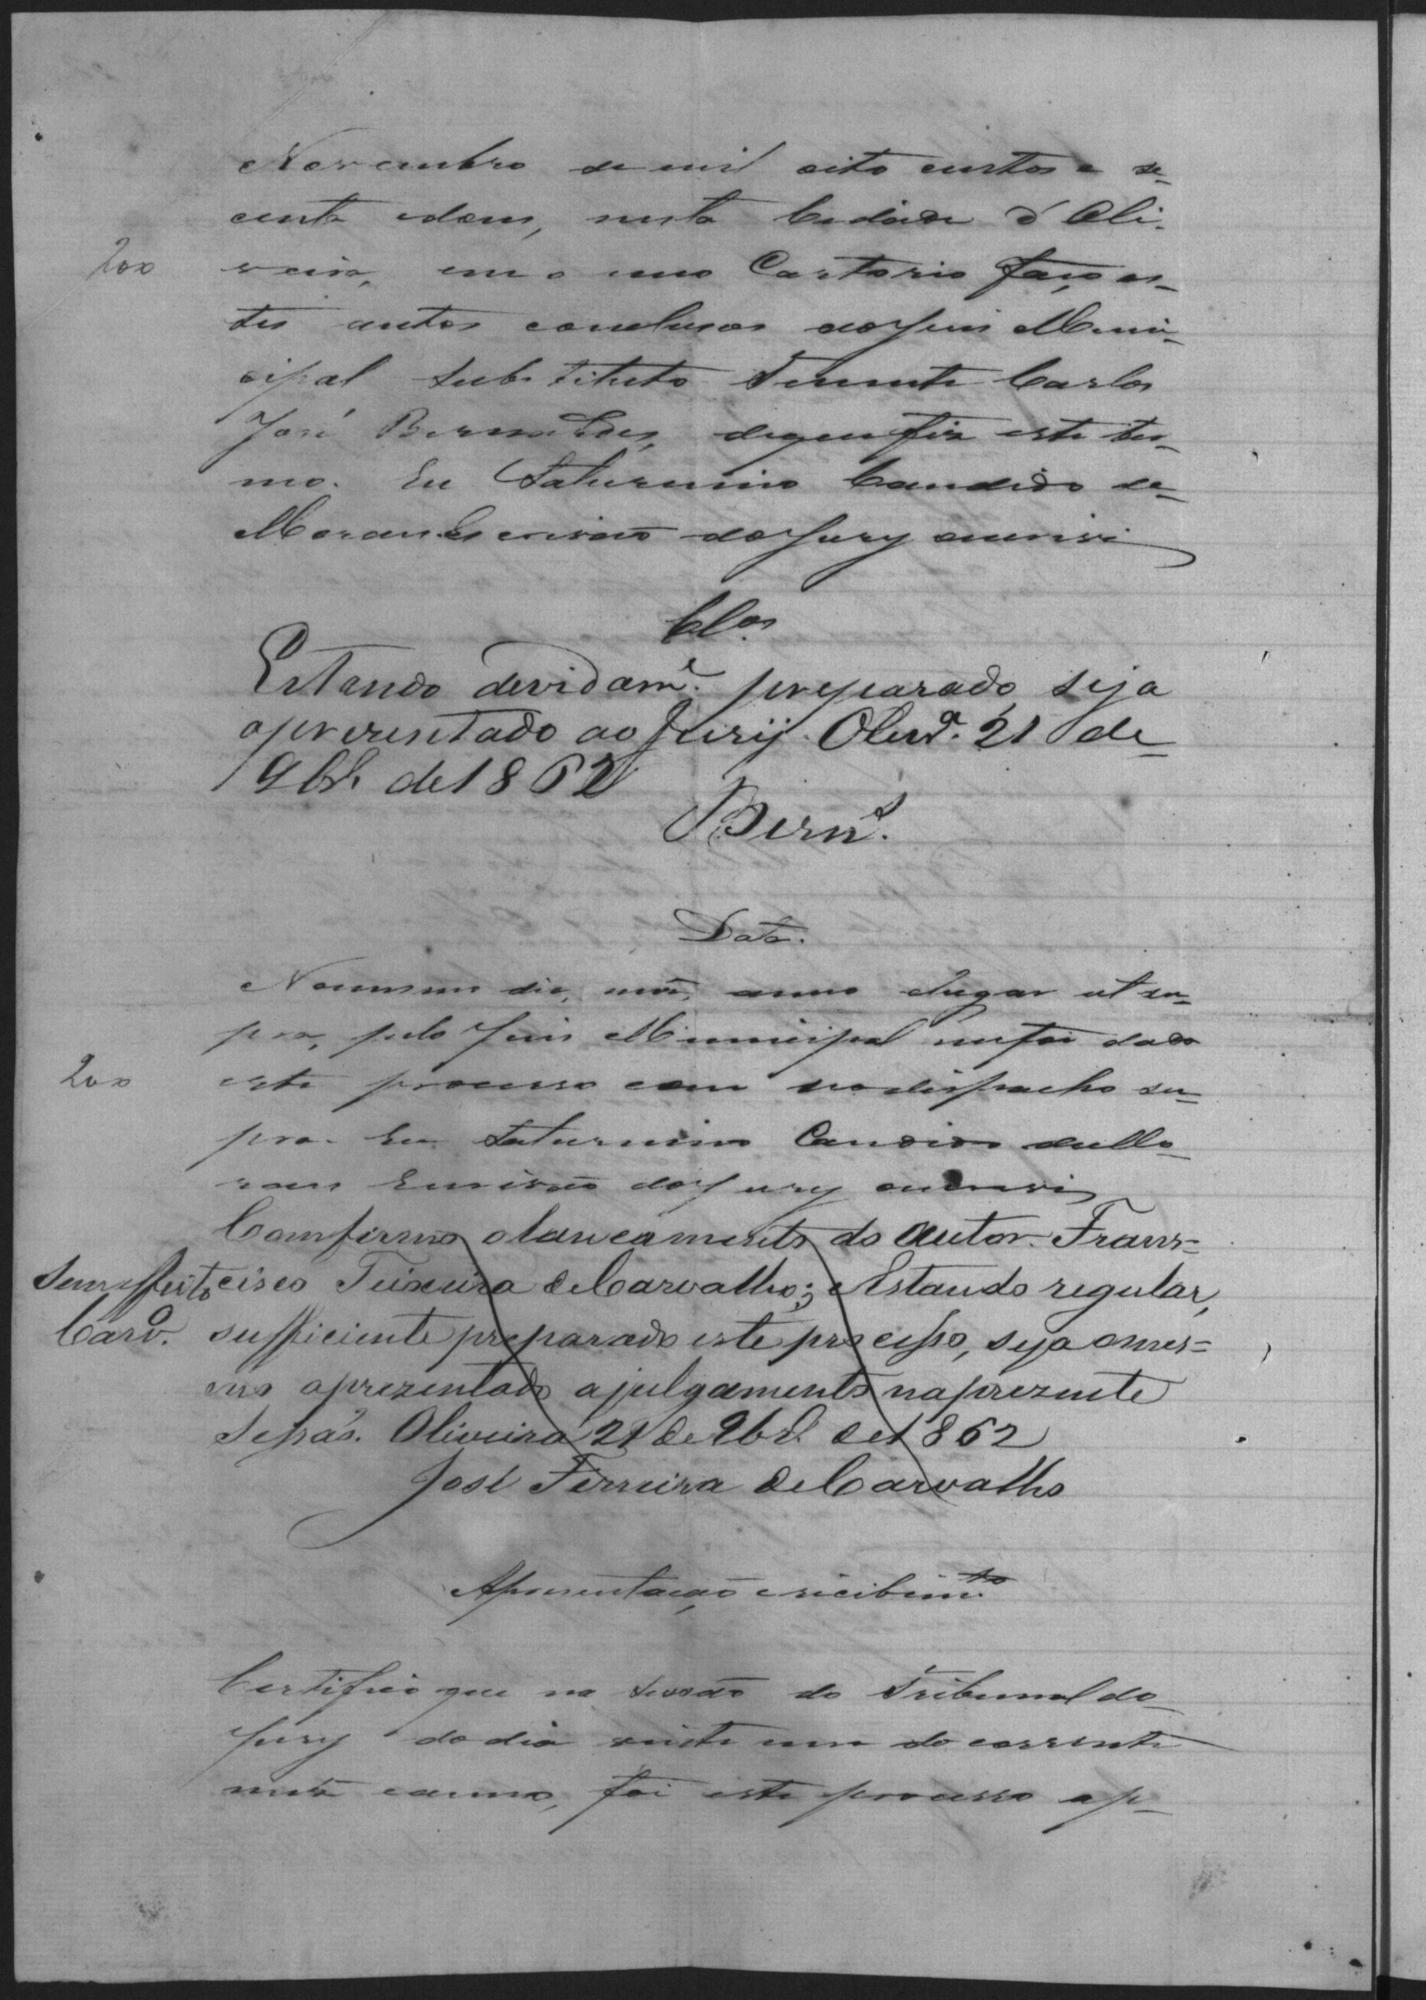 Novembro de mil oito centos e se-
centa e dous, nesta Cidade d'Oli-
200
veira, em o meo Cartorio faço es-
tes autos conclusos ao Juis Muni-
cipal Substituto Tenente Carlos
José Bernardes, de que fiz este ter-
mo. Eu Saturnino Candido de
Moraes Escrivão do Jury escrevi
Clos
Estando devidamte. preparado, seja
apresentado ao Jurÿ. Olivra. 21 de
9br. de 1862
Berns.
Data.
No mesmo dia, mes, anno e lugar ut su-
pra, pelo Juis Municipal me foi dado
200
este processo com seo dispacho su-
pra. Eu Saturnino Candido de Mo-
raes Escrivão do Jury escrevi
Comfirmo o lancamento do autor Frans=
Sem effeito
cisco Teixeira de Carvalho; e Estando regular,
Carvo.
sufficiente preparado este processo, seja o mes=
mo aprezentado a julgamento na prezente
Sessão. Oliveira 21 de 9br. de 1862
José Ferreira de Carvalho
Apresentação e recibimto.
Certifico que na Sessão do Tribunal do
Jury do dia vinte um do corrente
mes e anno, foi este processo ap-